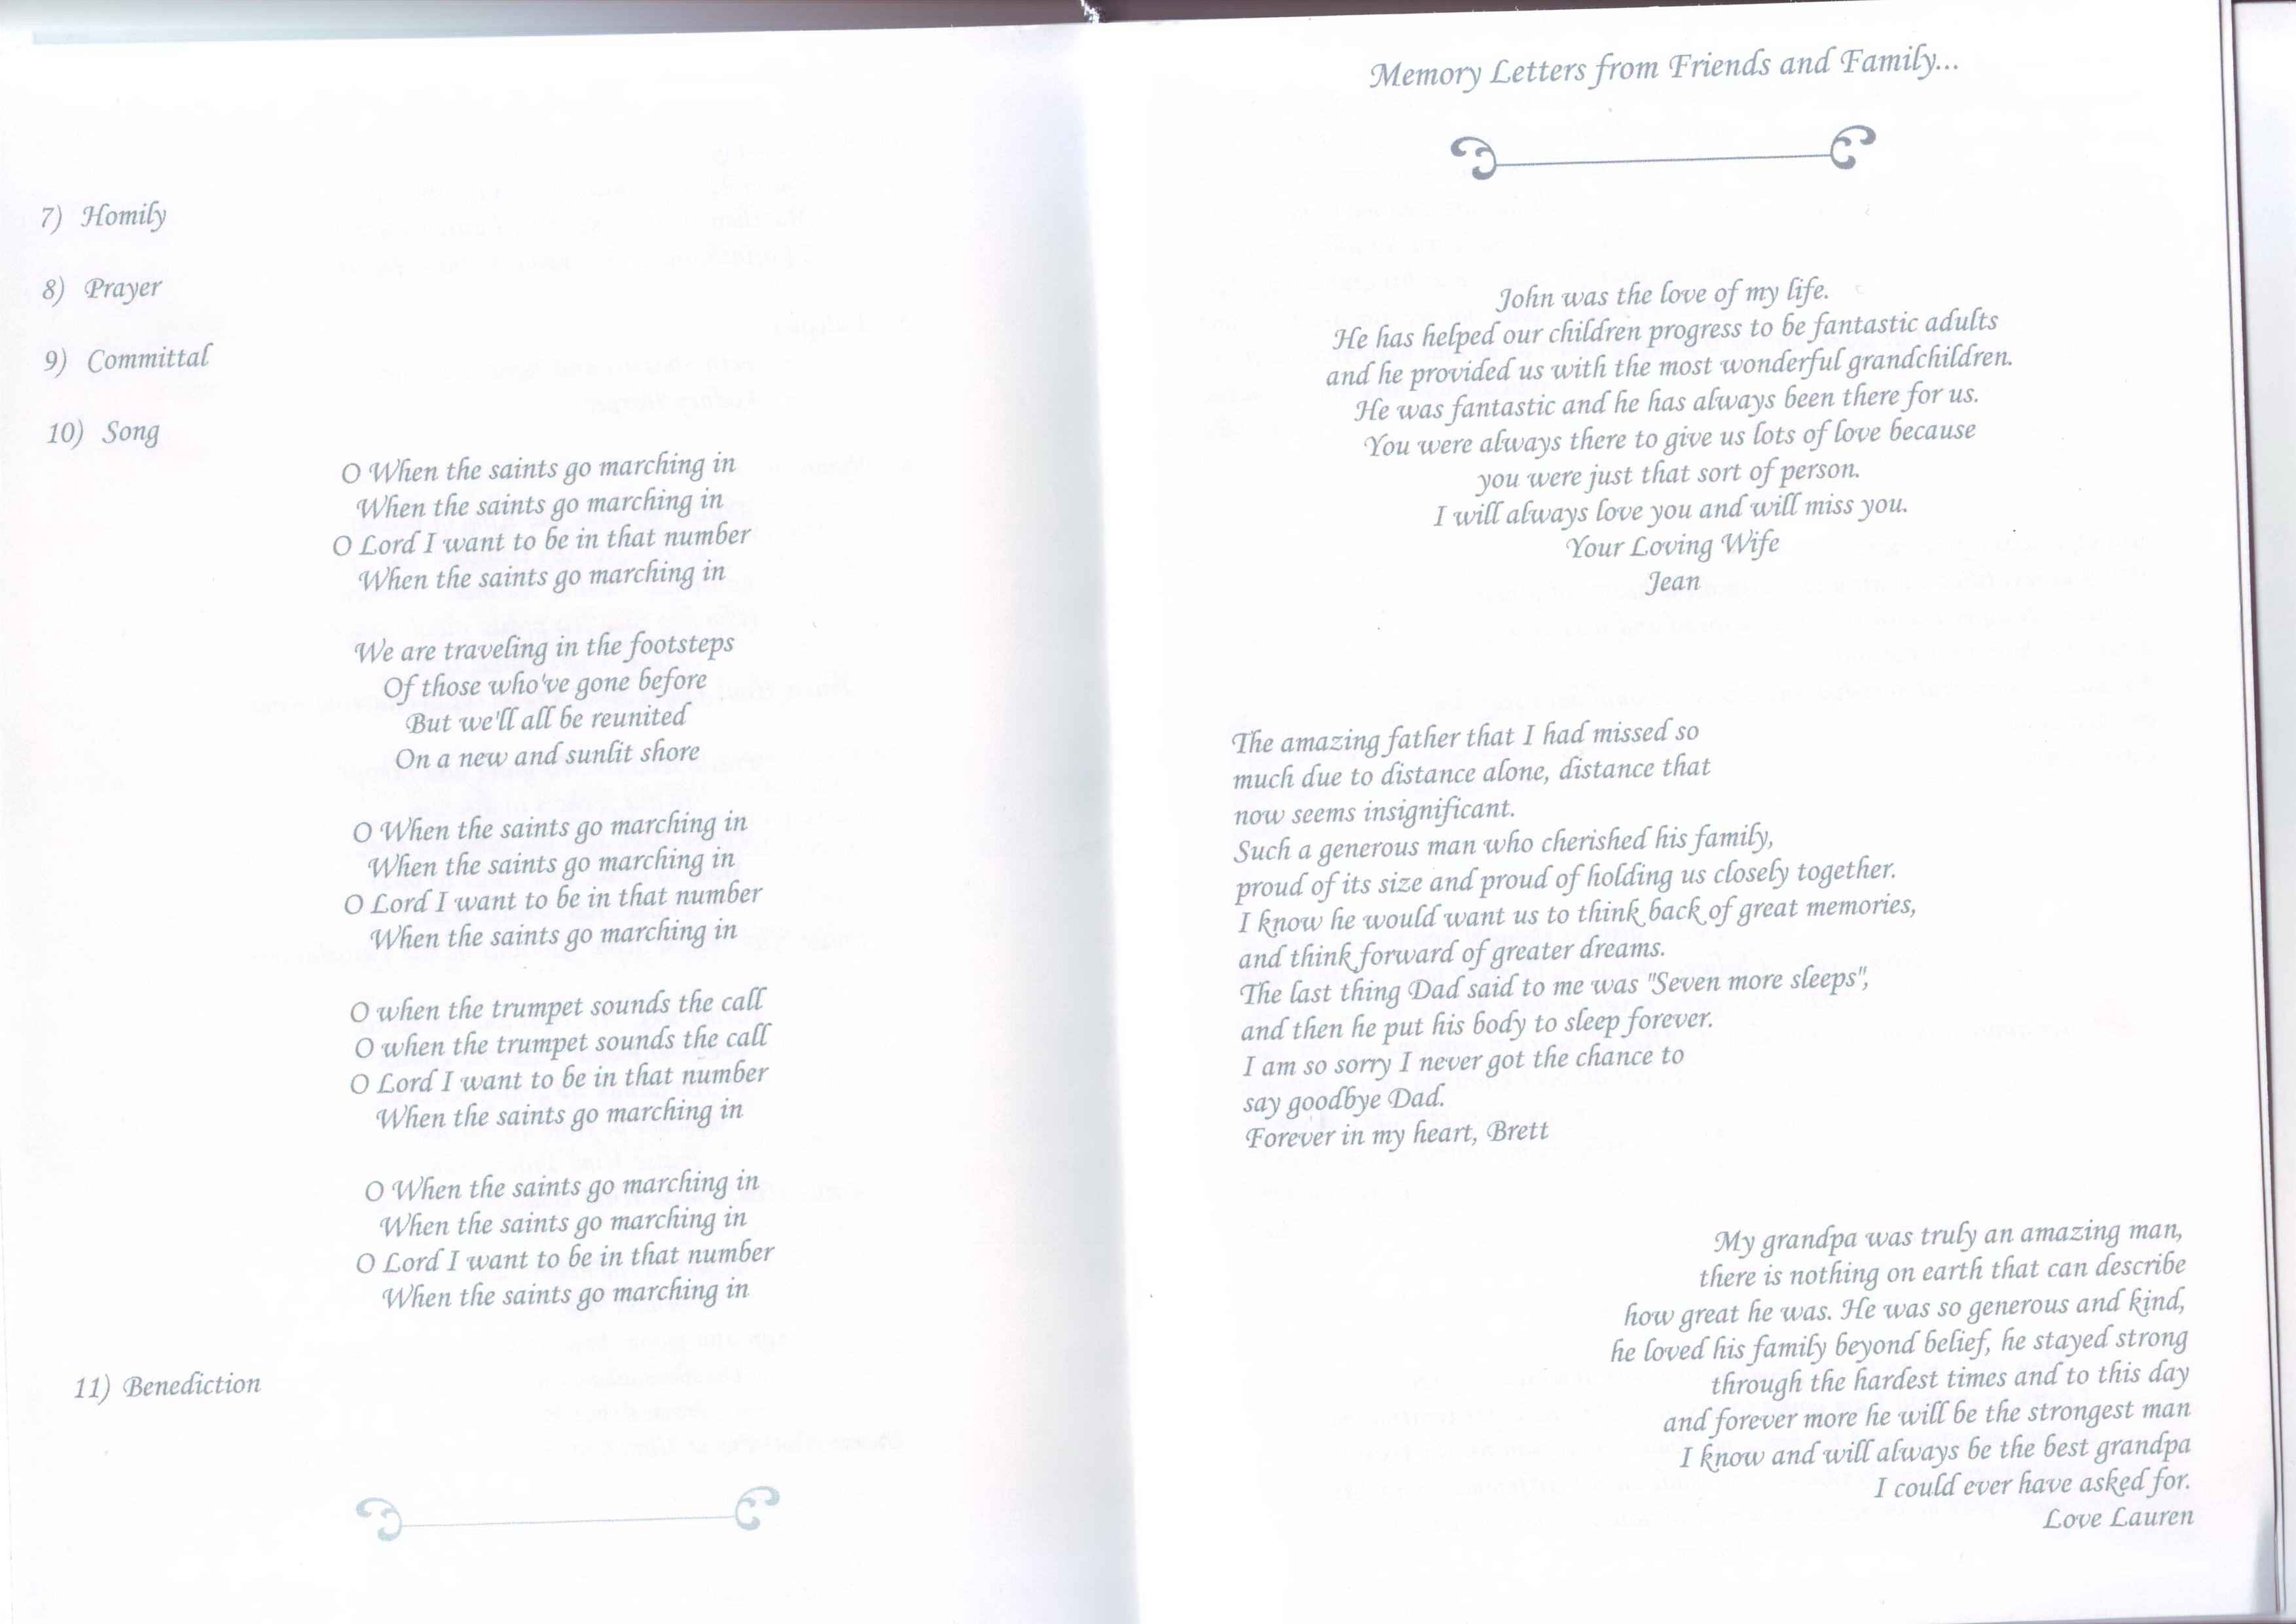 7) Homily
8) Prayer
9) Committal
10) Song
O When the saints go marching in
When the saints go marching in
O Lord I want to be in that number
When the saints go marching in
We are traveling in the footsteps
Of those who've gone before
But we'll all be reunited
On a new and sunlit shore
O When the saints go marching in
When the saints go marching in
O Lord I want to be in that number
When the saints go marching in
O when the trumpet sounds the call
O when the trumpet sounds the call
O Lord I want to be in that number
When the saints go marching in
O When the saints go marching in
When the saints go marching in
O Lord I want to be in that number
When the saints go marching in
11) Benediction
Memory Letters from Friends and Family...
John was the love of my life.
He has helped our children progress to be fantastic adults
and he provided us with the most wonderful grandchildren.
He was fantastic and he has always been there for us.
You were always there to give us lots of love because
you were just that sort of person.
I will always love you and will miss you.
Your Loving Wife
Jean
The amazing father that I had missed so
much due to distance alone, distance that
now seems insignificant.
Such a generous man who cherished his family,
proud of its size and proud of holding us closely together.
I know he would want us to think back of great memories,
and think forward of greater dreams.
The last thing Dad said to me was "Seven more sleeps",
and then he put his body to sleep forever.
I am so sorry I never got the chance to
say goodbye Dad.
Forever in my heart, Brett
My grandpa was truly an amazing man,
there is nothing on earth that can describe
how great he was. He was so generous and kind,
he loved his family beyond belief, he stayed strong
through the hardest times and to this day
and forever more he will be the strongest man
I know and will always be the best grandpa
I could ever have asked for.
Love Lauren